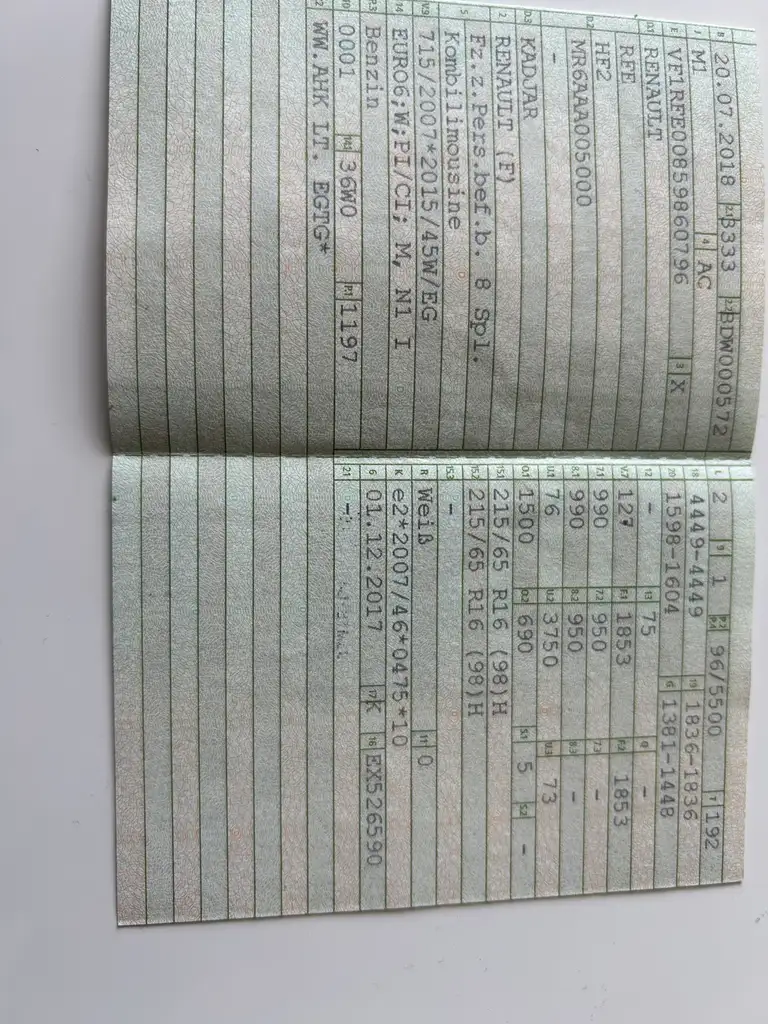 B 20.07.2018 2.1 8333 2.2 BDW000572
J M1 4 AC
E VF1RFE00859860796 3 X
D.1 RENAULT
RFE
D.2 HF2
MR6AAA005000
-
D.3 KADJAR
2 RENAULT (F)
5 Fz.z.Pers.bef.b. 8 Spl.
Kombilimousine
V.9 715/2007*2015/45W/EG
14 EURO6;W;PI/CI; M, N1 I
P.3 Benzin
10 0001 14.1 36W0 P.1 1197
22 WW.AHK LT. EGTG*
L 2 9 1 P.2 P.4 96/5500 T 192
18 4449-4449 19 1836-1836
20 1598-1604 G 1381-1448
12 - 13 75 Q -
V.7 127 F.1 1853 F.2 1853
7.1 990 7.2 950 7.3 -
8.1 990 8.2 950 8.3 -
U.1 76 U.2 3750 U.3 73
O.1 1500 O.2 690 S.1 5 S.2 -
15.1 215/65 R16 (98)H
15.2 215/65 R16 (98)H
15.3 -
R Weiß 11 0
K e2*2007/46*0475*10
6 01.12.2017 17 K 16 EX526590
21 -